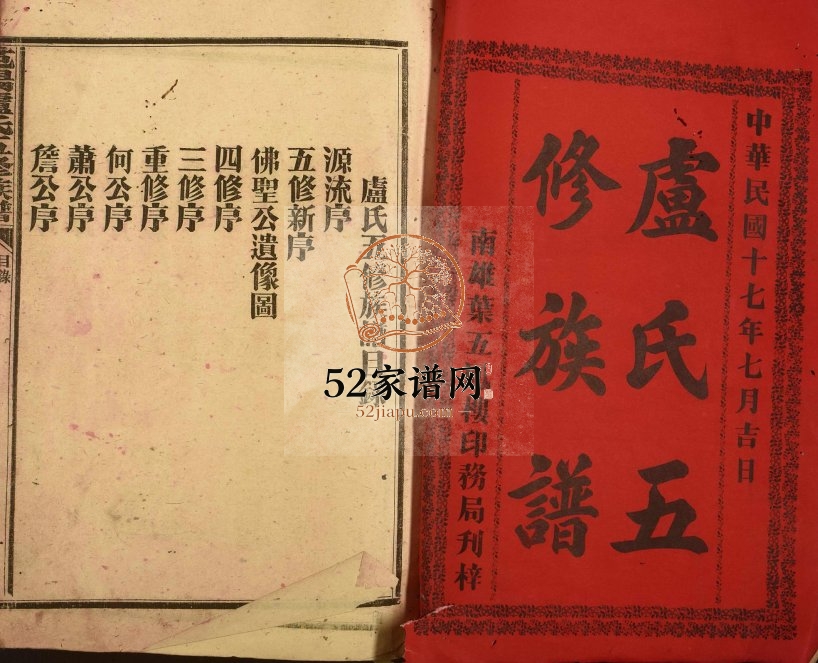 中華民國十七年七月吉日
盧氏五
修族譜
南雄葉五樓印務局刊梓
盧氏五修族譜目錄
源流序
五修新序
佛聖公遺像圖
四修序
三修序
重修序
何公序
蕭公序
詹公序
盧氏五修族譜
目錄
52家谱网
52jiapu.com